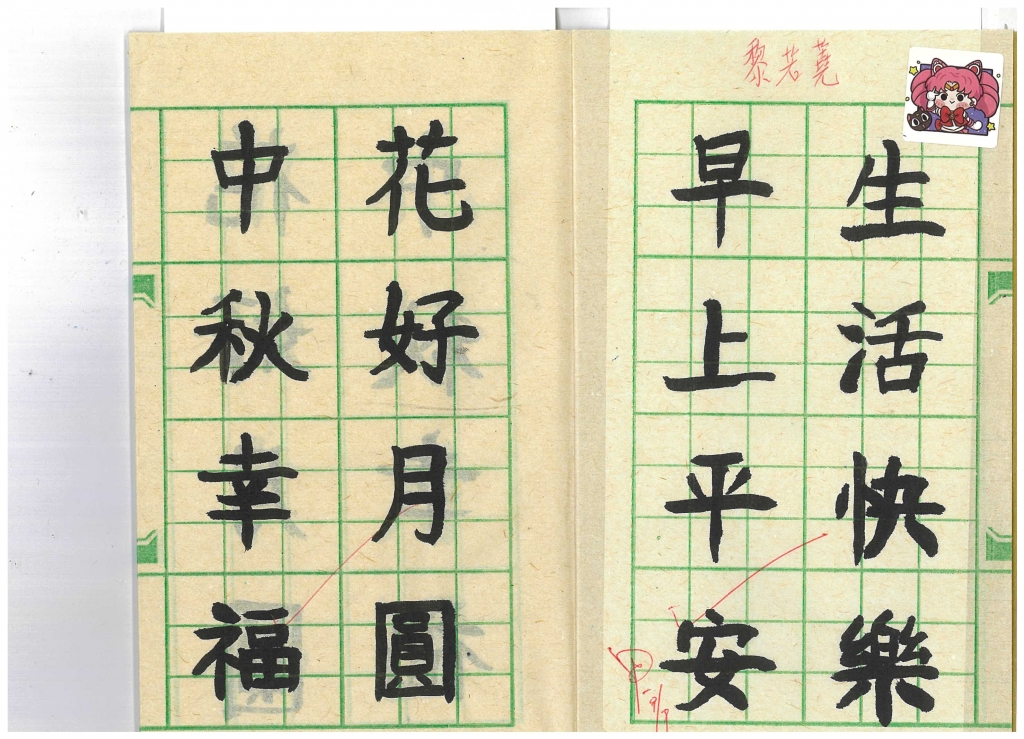 黎若蕘
生活快樂
早上平安
花好月圓
中秋幸福